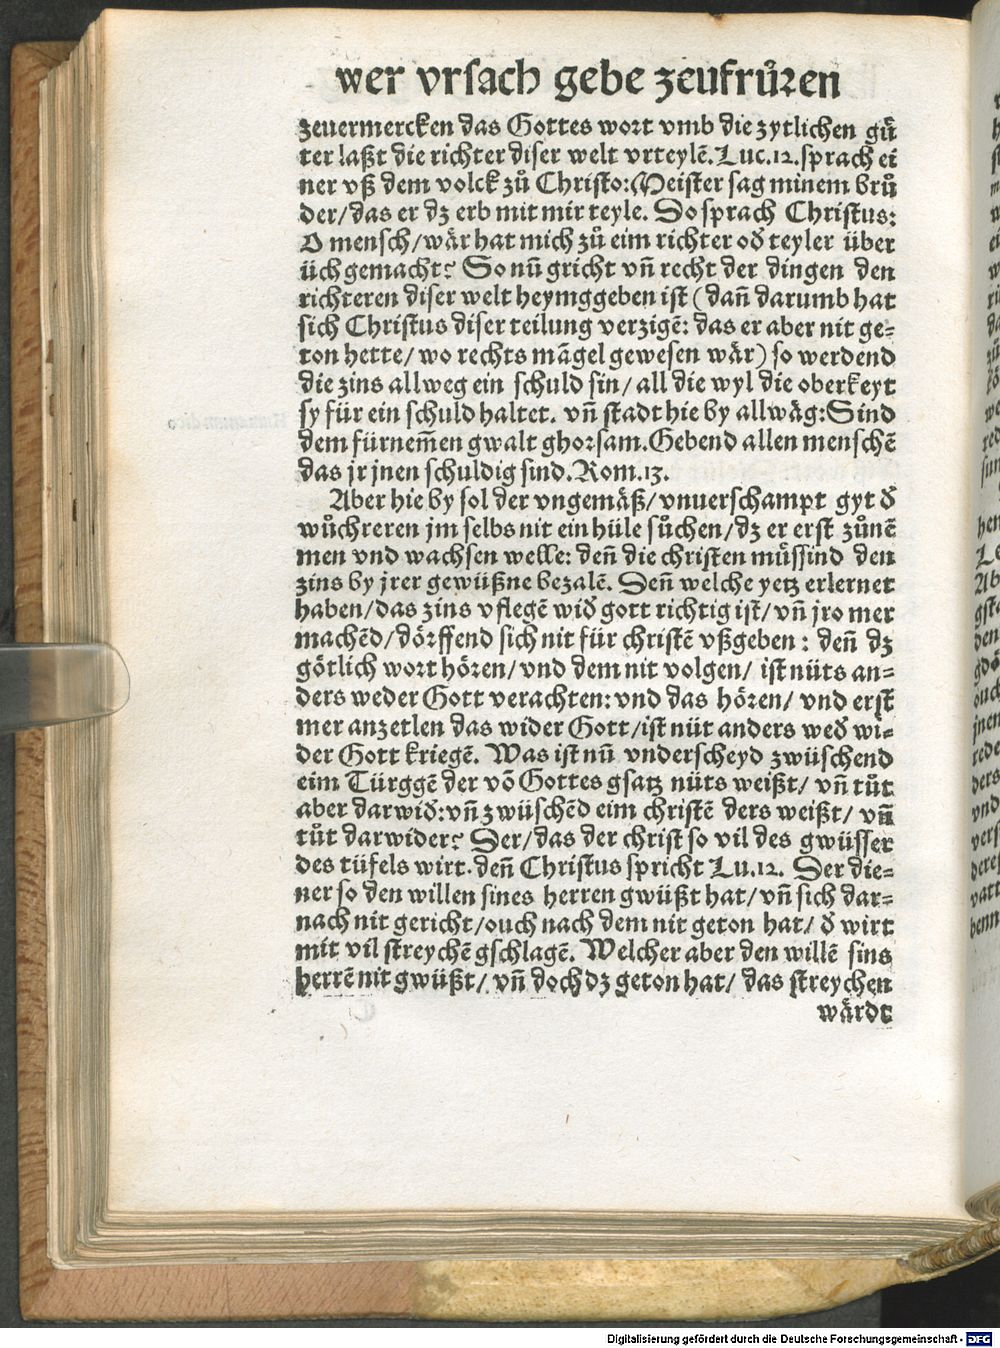 wer vrsach gebe zeufrůren
zeuermercken das Gottes wort vmb die zytlichen gů
ter laßt die richter diser welt vrteylē. Luc. 12. sprach ei
ner vß dem volck zů Christo: Meister sag minem brů
der/ das er dz erb mit mir teyle. Do sprach Christus:
O mensch/ wär hat mich zů eim richter oď teyler über
üch gemacht? So nū gricht vñ recht der dingen den
richteren diser welt heymggeben ist (dañ darumb hat
sich Christus diser teilung verzigē: das er aber nit ge⸗
ton hette/ wo rechts māgel gewesen wär) so werdend
die zins allweg ein schuld sin/ all die wyl die oberkeyt
sy für ein schuld haltet. vñ stadt hie by allwäg: Sind
dem fürnem̄en gwalt ghorsam. Gebend allen menschē
das jr jnen schuldig sind. Rom. 13.
Aber hie by sol der vngemäß/ vnuerschampt gyt ď
wůchreren jm selbs nit ein hüle sůchen/ dz er erst zůnē
men vnd wachsen welle: deñ die christen müssind den
zins by jrer gewüßne bezalē. Deñ welche yetz erlernet
haben/ das zins vflegē wiď gott richtig ist/ vñ jro mer
machēd/ dörffend sich nit für christē vßgeben: deñ dz
götlich wort hören/ vnd dem nit volgen/ ist nüts an⸗
ders weder Gott verachten: vnd das hören/ vnd erst
mer anzetlen das wider Gott/ ist nüt anders weď wi⸗
der Gott kriegē. Was ist nū vnderscheyd zwüschend
eim Türggē der vō Gottes gsatz nüts weißt/ vñ tůt
aber darwiď: vñ zwüschēd eim christē ders weißt/ vñ
tůt darwider? Der/ das der christ so vil des gwüsser
des tüfels wirt. deñ Christus spricht Lu. 12. Der die⸗
ner so den willen sines herren gwüßt hat/ vñ sich dar⸗
nach nit gericht/ ouch nach dem nit geton hat/ ď wirt
mit vil streychē gschlagē. Welcher aber den willē sins
herrē nit gwüßt/ vñ doch dz geton hat/ das streychen
wärdt
Digitalisierung gefördert durch die Deutsche Forschungsgemeinschaft - DFG